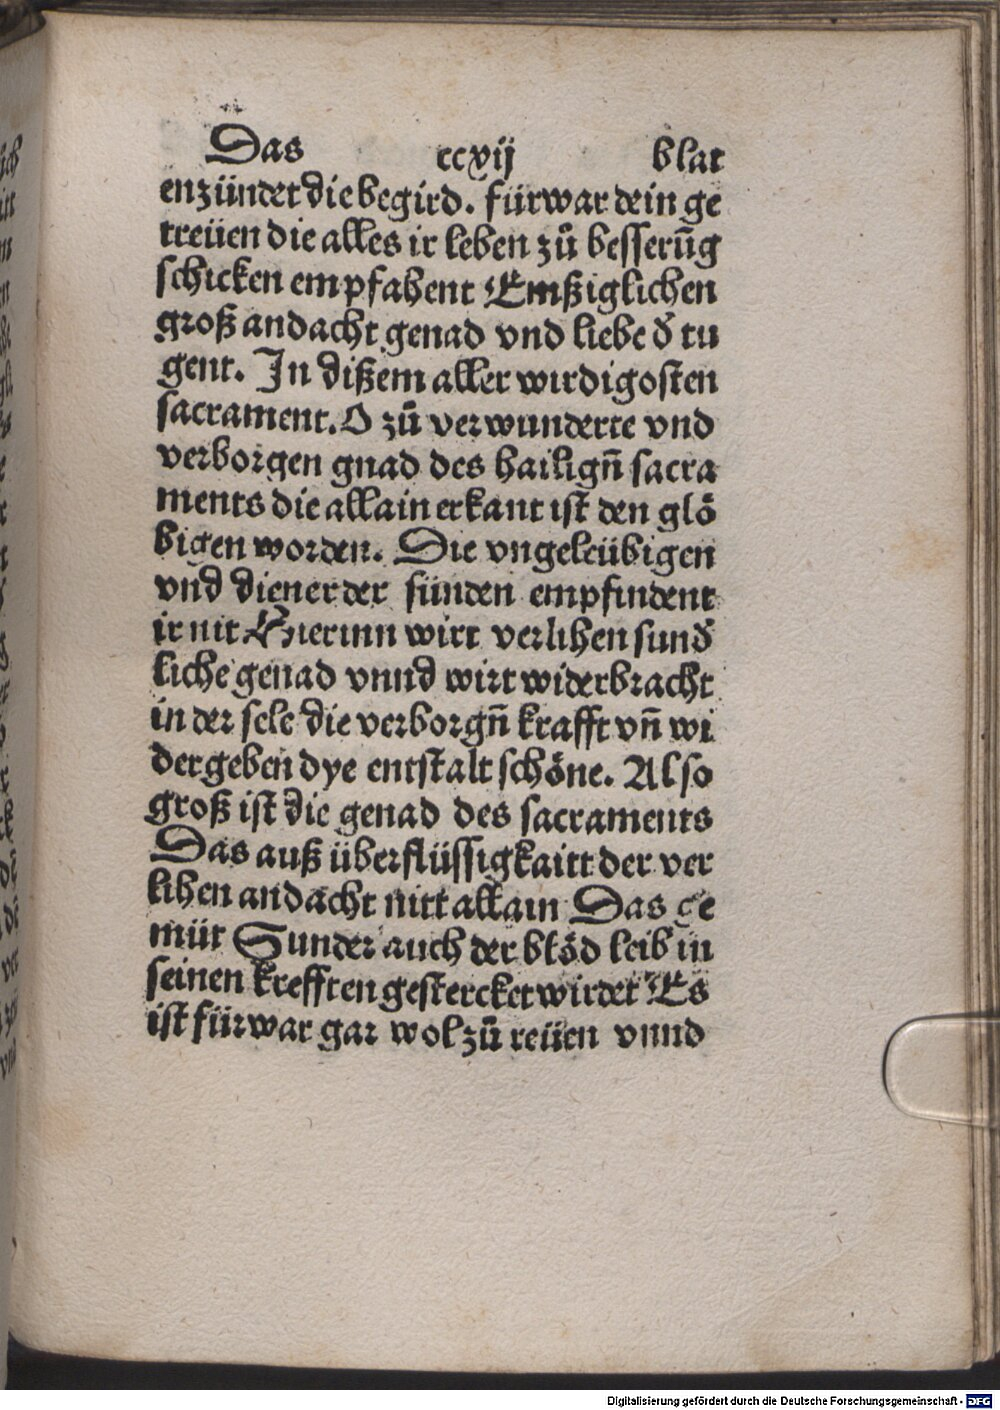 Das ccxij blat
enzündet die begird. fürwar dein ge
treüen die alles ir leben zů besserūg
schicken empfahent Emßiglichen
groß andacht genad vnd liebe d̓ tu
gent. In dißem aller wirdigosten
sacrament. O zů verwunderte vnd
verborgen gnad des hailigñ sacra
ments die allain erkant ist den glö
bigen worden. Die vngeleübigen
vnd diener der sünden empfindent
ir nit Hierinn wirt verlihen sund̓
liche genad vnnd wirt widerbracht
in der sele die verborgñ krafft vñ wi
dergeben dye entstalt schöne. Also
groß ist die genad des sacraments
Das auß überflüssigkaitt der ver
lihen andacht nitt allain Das ge
müt Sunder auch der blöd leib in
seinen krefften gestercket wirdet Es
ist fürwar gar wol zů reüen vnnd
Digitalisierung gefördert durch die Deutsche Forschungsgemeinschaft - DFG